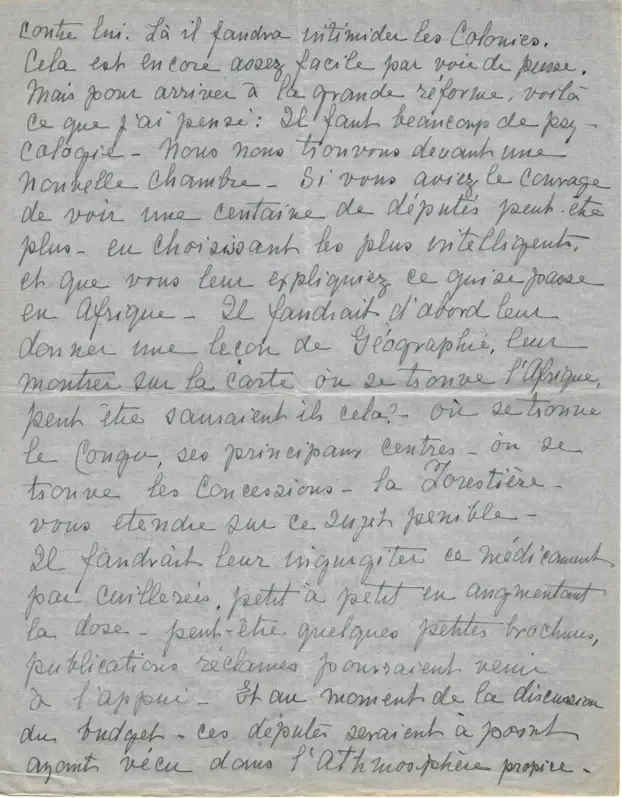 contre lui. Là il faudra intimider les Colonies.
Cela est encore assez facile par voie de presse.
Mais pour arriver à la grande réforme, voilà
ce que j'ai pensé: Il faut beaucoup de psy-
cologie - Nous nous trouvons devant une
nouvelle Chambre - Si vous aviez le courage
de voir une centaine de députés peut-être
plus - en choisissant les plus intelligents,
et que vous leur expliquiez ce qui se passe
en Afrique - Il faudrait d'abord leur
donner une leçon de Géographie, leur
montrer sur la carte où se trouve l'Afrique,
peut être sauraient ils cela? - où se trouve
le Congo, ses principaux centres - où se
trouve les Concessions - la Forestière -
vous étendre sur ce sujet penible -
Il faudrait leur ingurgiter ce médicament
par cuillerées, petit à petit en augmentant
la dose - peut-être quelques petites brochures,
publications réclames pourraient venir
à l'appui - Et au moment de la discussion
du budget - ces députés seraient à point
ayant vécu dans l'Athmosphère propice -